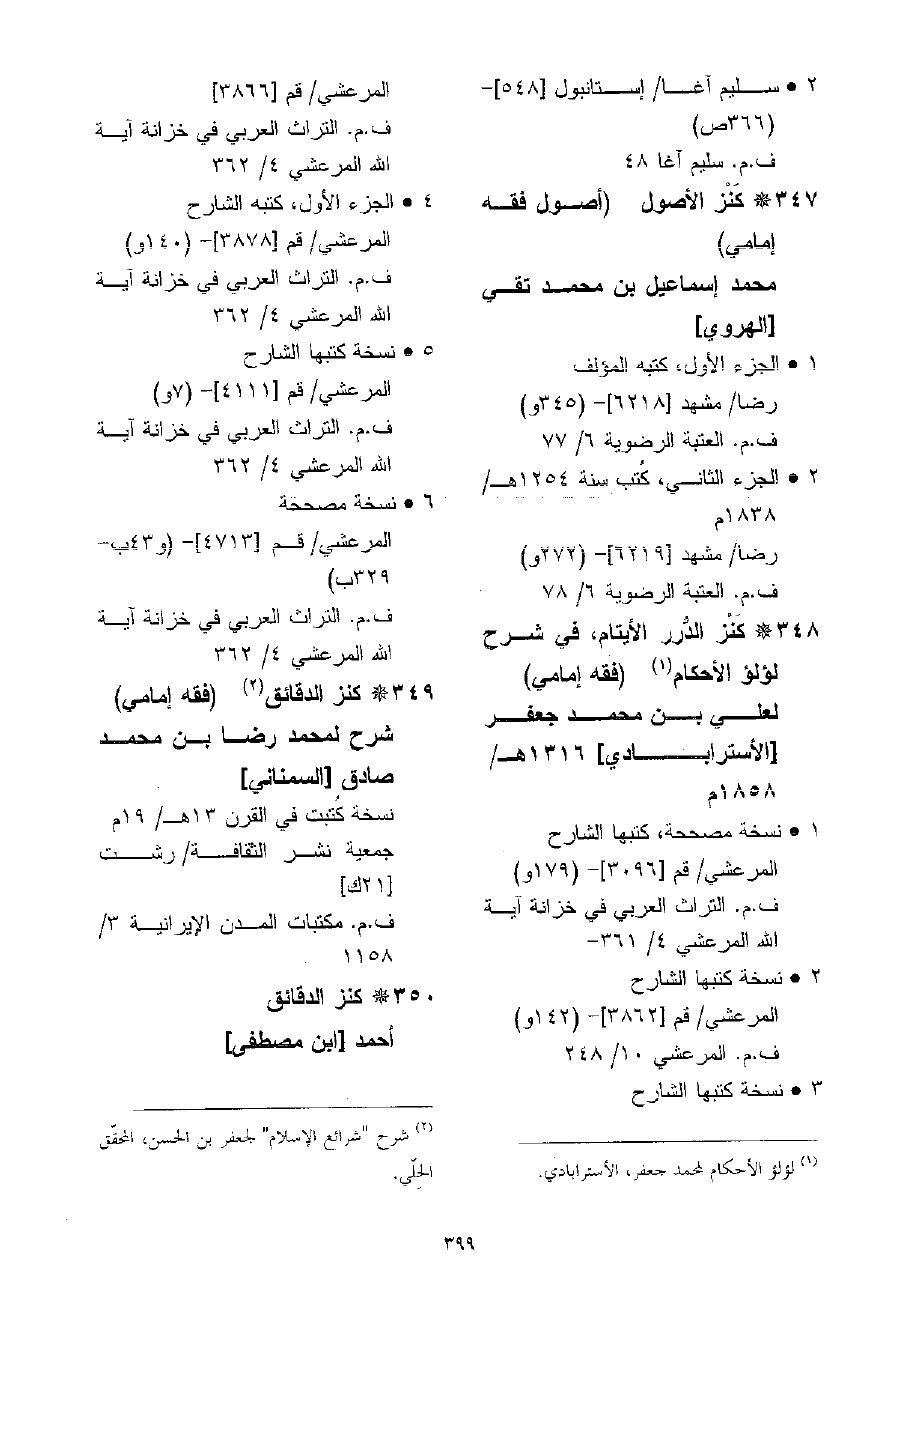 ٢ • سليم آغا/ إستانبول [٥٤٨]-
(٣٦٦ص)
ف.م. سليم آغا ٤٨
٣٤٧* كَنْز الأصول (أصول فقه
إمامي)
محمد إسماعيل بن محمد تقي
[الهروي]
١ • الجزء الأول، كتبه المؤلف
رضا/ مشهد [٦٢١٨]- (٣٤٥و)
ف.م. العتبة الرضوية ٦/ ٧٧
٢ • الجزء الثاني، كُتب سنة ١٢٥٤هـ/
١٨٣٨م
رضا/ مشهد [٦٢١٩]- (٢٧٢و)
ف.م. العتبة الرضوية ٦/ ٧٨
٣٤٨* كَنْز الدُّرر الأيتام، في شرح
لؤلؤ الأحكام(١) (فقه إمامي)
لعلي بن محمد جعفر
[الأسترابادي] ١٣١٦هـ/
١٨٥٨م
١ • نسخة مصححة، كتبها الشارح
المرعشي/ قم [٣٠٩٦]- (١٧٩و)
ف.م. التراث العربي في خزانة آية
الله المرعشي ٤/ ٣٦١-
٢ • نسخة كتبها الشارح
المرعشي/ قم [٣٨٦٢]- (١٤٢و)
ف.م. المرعشي ١٠/ ٢٤٨
٣ • نسخة كتبها الشارح
(١) لؤلؤ الأحكام لمحمد جعفر، الأسترابادي.
المرعشي/ قم [٣٨٦٦]
ف.م. التراث العربي في خزانة آية
الله المرعشي ٤/ ٣٦٢
٤ • الجزء الأول، كتبه الشارح
المرعشي/ قم [٣٨٧٨]- (١٤٠و)
ف.م. التراث العربي في خزانة آية
الله المرعشي ٤/ ٣٦٢
٥ • نسخة كتبها الشارح
المرعشي/ قم [٤١١١]- (٧و)
ف.م. التراث العربي في خزانة آية
الله المرعشي ٤/ ٣٦٢
٦ • نسخة مصححة
المرعشي/ قم [٤٧١٣]- (و٤٣ب-
٣٢٩ب)
ف.م. التراث العربي في خزانة آية
الله المرعشي ٤/ ٣٦٢
٣٤٩* كنز الدقائق(٢) (فقه إمامي)
شرح لمحمد رضا بن محمد
صادق [السمناني]
نسخة كُتبت في القرن ١٣هـ/ ١٩م
جمعية نشر الثقافة/ رشت
[٢١ك]
ف.م. مكتبات المدن الإيرانية ٣/
١١٥٨
٣٥٠* كنز الدقائق
أحمد [ابن مصطفى]
(٢) شرح "شرائع الإسلام" لجعفر بن الحسن، المحقّق
الحِلّي.
٣٩٩